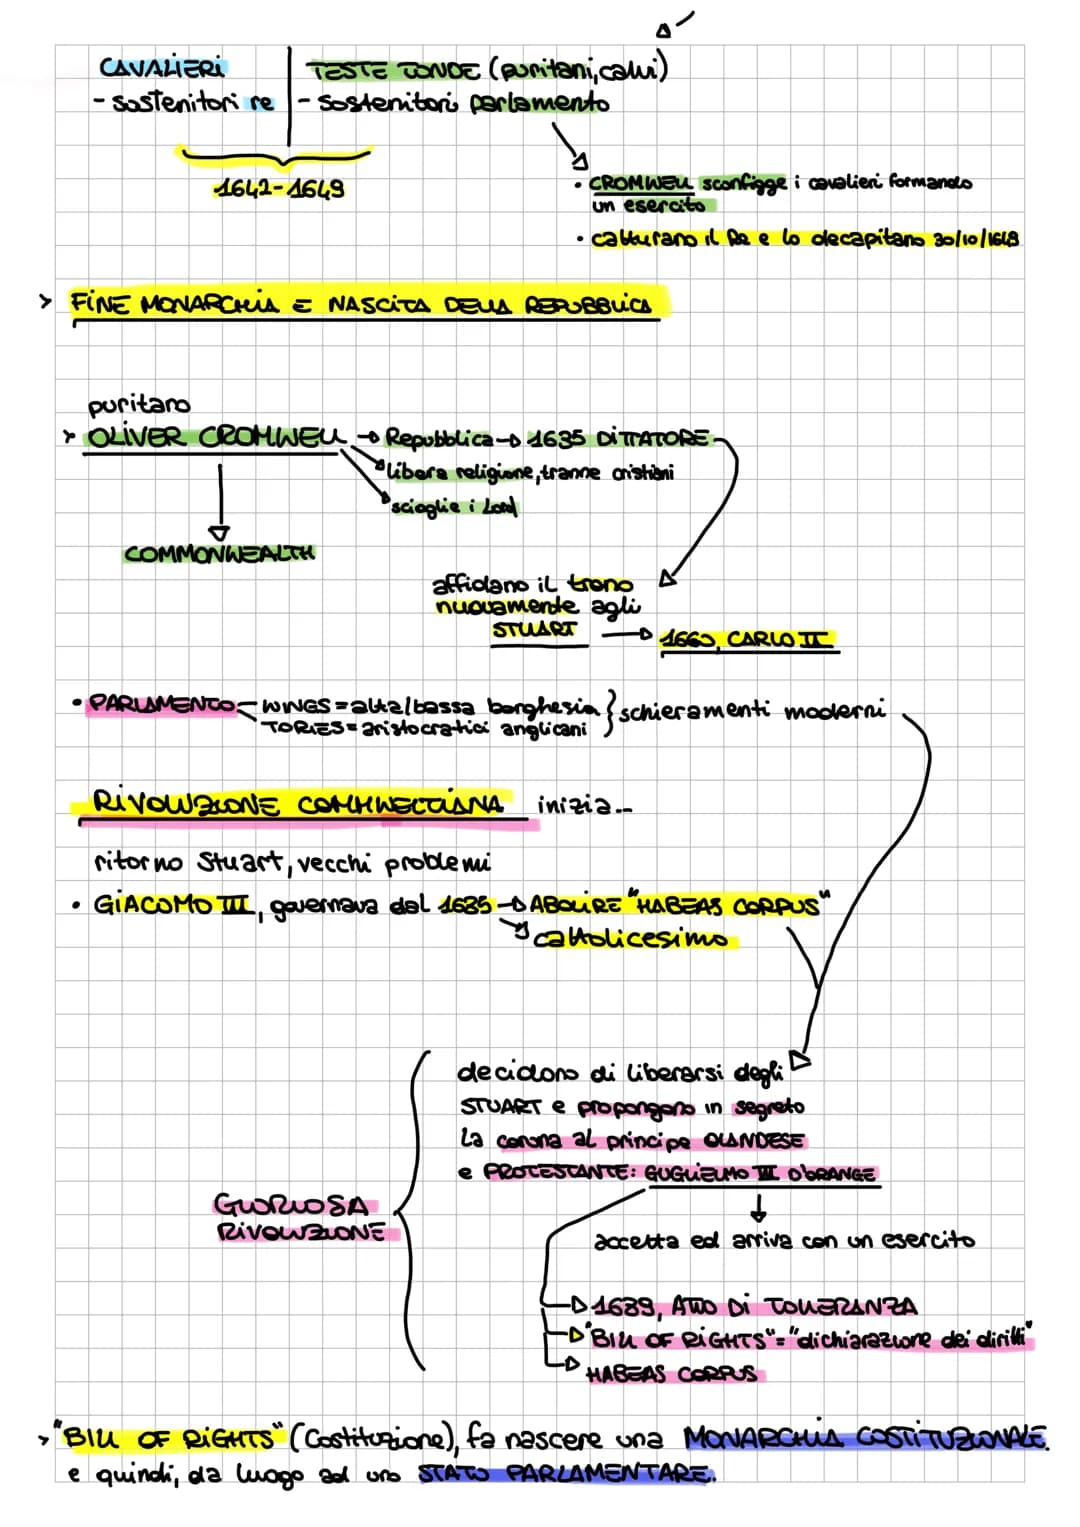 CAVALIERI
- sostenitori re
TESTE TONDE (puritani, calvi)
- sostenitori parlamento
1642-1649
• CROMWELL sconfigge i cavalieri formando
un esercito
• catturano il Re e lo decapitano 30/10/1649
> FINE MONARCHIA E NASCITA DELLA REPUBBLICA
puritano
> OLIVER CROMWELL → Repubblica → 1635 DITTATORE
libera religione, tranne cristiani
scioglie i Lord
COMMONWEALTH
affidano il trono
nuovamente agli
STUART → 1660, CARLO II
• PARLAMENTO - WINGS = alta/bassa borghesia } schieramenti moderni
TORIES = aristocratici anglicani
RIVOLUZIONE inizia...
ritorno Stuart, vecchi problemi
• GIACOMO III, governava dal 1685 → ABOLIRE "HABEAS CORPUS"
cattolicesimo
decidono di liberarsi degli
STUART e propongono in segreto
la corona al principe OLANDESE
e PROTESTANTE: GUGLIELMO III D'ORANGE
GLORIOSA
RIVOLUZIONE
accetta ed arriva con un esercito
→ 1689, ATTO DI TOLLERANZA
→ "BILL OF RIGHTS" = "dichiarazione dei diritti"
→ HABEAS CORPUS
> "BILL OF RIGHTS" (Costituzione), fa nascere una MONARCHIA COSTITUZIONALE.
e quindi, da luogo ad uno STATO PARLAMENTARE.